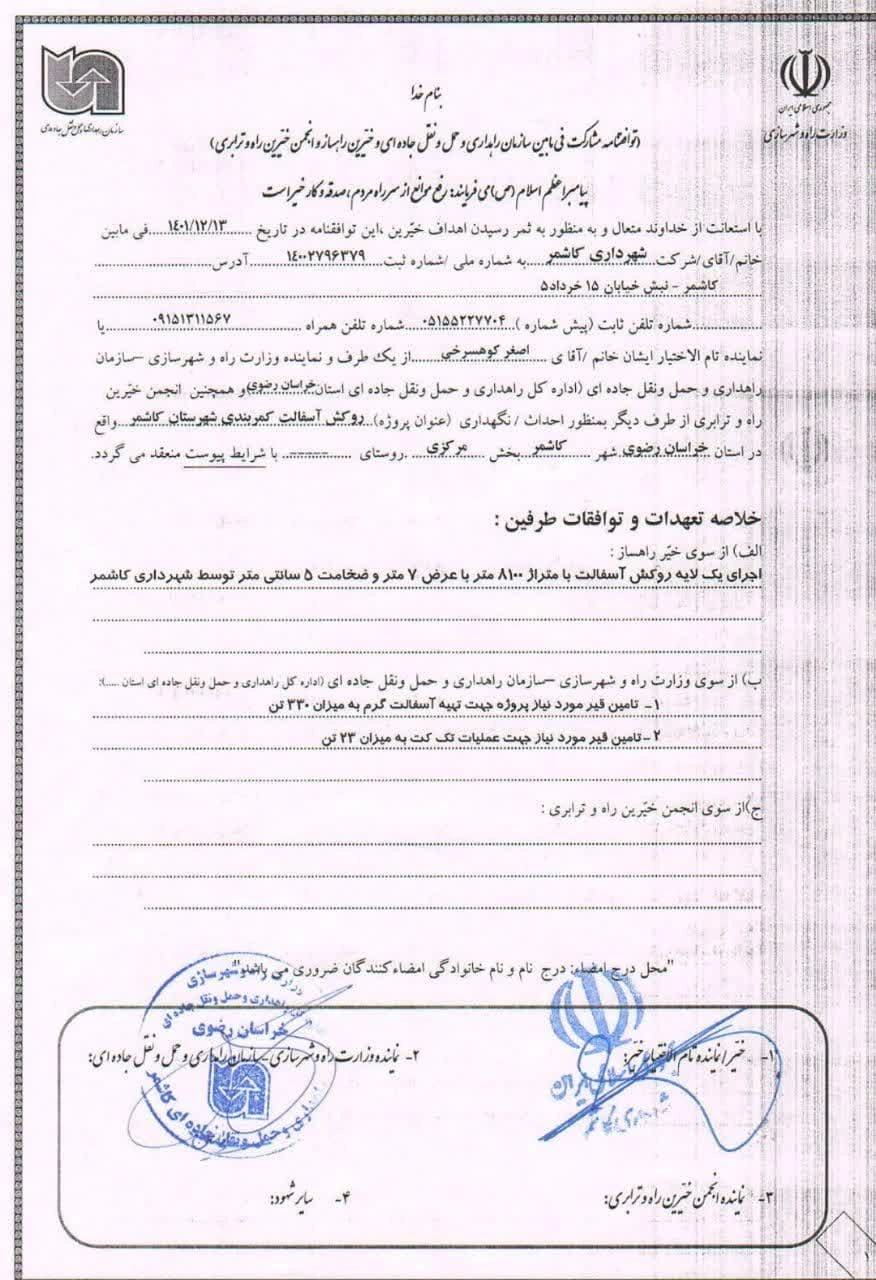 بنام خدا
جمهوری اسلامی ایران
وزارت راه و شهرسازی
سازمان راهداری و حمل و نقل جاده ای
(توافقنامه مشارکت فی مابین سازمان راهداری و حمل و نقل جاده ای و خیّرین راهساز و انجمن خیّرین راه و ترابری)
پیامبر اعظم اسلام (ص) می فرمایند: رفع موانع از سر راه مردم ، صدقه و کار خیر است
با استعانت از خداوند متعال و به منظور به ثمر رسیدن اهداف خیّرین ،این توافقنامه در تاریخ ......۱۴۰۱/۱۲/۱۳......فی مابین
خانم/آقای/شرکت....شهرداری کاشمر....به شماره ملی /شماره ثبت....۱۴۰۰۲۷۹۶۳۷۹....آدرس....................
کاشمر - نبش خیابان ۱۵ خرداد۵
................شماره تلفن ثابت (پیش شماره )..۰۵۱۵۵۲۲۷۷۰۴...شماره تلفن همراه ........۰۹۱۵۱۳۱۱۵۶۷........یا
نماینده تام الاختیار ایشان خانم /آقا ی ....اصغر کوهسرخی....از یک طرف و نماینده وزارت راه و شهرسازی –سازمان
راهداری و حمل ونقل جاده ای (اداره کل راهداری و حمل ونقل جاده ای استان خراسان رضوی)و همچنین انجمن خیّرین
راه و ترابری از طرف دیگر بمنظور احداث / نگهداری (عنوان پروژه)..روکش آسفالت کمربندی شهرستان کاشمر..واقع
در استان خراسان رضوی شهر ....کاشمر بخش ....مرکزی.... .روستای ......-----.. با شرایط پیوست منعقد می گردد.
خلاصه تعهدات و توافقات طرفین :
الف) از سوی خیّر راهساز :
اجرای یک لایه روکش آسفالت با متراژ ۸۱۰۰ متر با عرض ۷ متر و ضخامت ۵ سانتی متر توسط شهرداری کاشمر
ب) از سوی وزارت راه و شهرسازی –سازمان راهداری و حمل ونقل جاده ای (اداره کل راهداری و حمل ونقل جاده ای استان .....):
۱- تامین قیر مورد نیاز پروژه جهت تهیه آسفالت گرم به میزان ۳۳۰ تن
۲-تامین قیر مورد نیاز جهت عملیات تک کت به میزان ۲۳ تن
ج)از سوی انجمن خیّرین راه و ترابری :
"محل درج امضاء: درج نام و نام خانوادگی امضاء کنندگان ضروری می باشد"
۱- خیّر / نماینده تام الاختیار خیّر:
۲- نماینده وزارت راه و شهرسازی - سازمان راهداری و حمل و نقل جاده ای:
وزارت راه و شهرسازی
راهداری و حمل ونقل جاده ای
خراسان رضوی
راهداری و حمل ونقل جاده ای کاشمر
۳- نماینده انجمن خیّرین راه و ترابری:
۴- سایر شهود:
۱